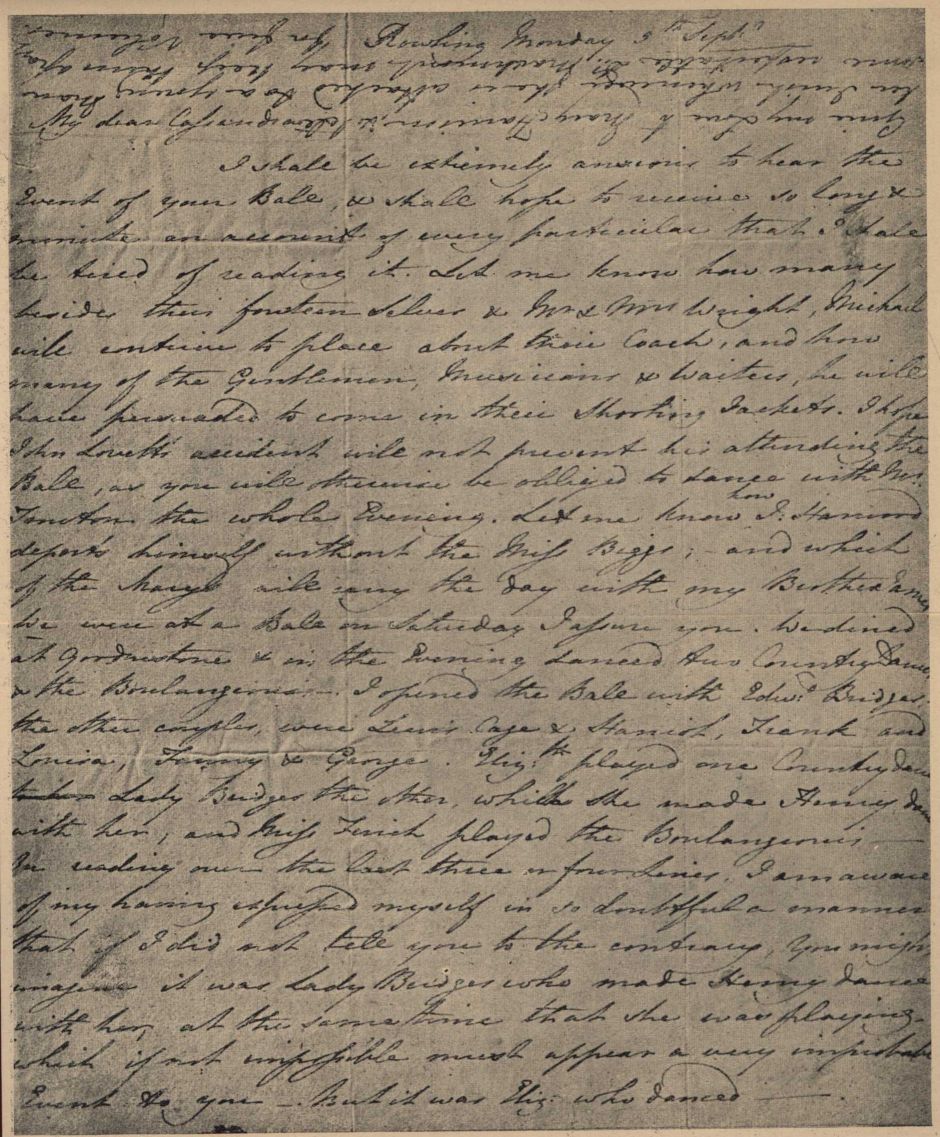 Rowling Monday 5th Septr
My dear Cassandra
I shall be extremely anxious to hear the
Event of your Ball, & shall hope to receive so long &
minute an account of every particular that I shall
be tired of reading it. Let me know how many
besides their fourteen Selves & Mr & Mrs Wright, Michael
will contrive to place about their Coach, and how
many of the Gentlemen, Musicians & Waiters, he will
have persuaded to come in their Shooting Jackets. I hope
John Lovett's accident will not prevent his attending the
Ball, as you will otherwise be obliged to dance with Mr.
Tincton the whole Evening. Let me know how J. Harwood
deports himself without the Miss Biggs; - and which
of the Marys will carry the day with my Brother James
We were at a Ball on Saturday I assure you. We dined
at Goodnestone & in the Evening danced two Country Dances
& the Boulangeries. - I opened the Ball with Edwd. Bridges
the other couples, were Lewis Cage & Harriot, Frank and
Louisa, Fanny & George. Elizth played one Country dance
Lady Bridges the other, while She made Henry dance
with her; and Miss Finch played the Boulangeries -
In reading over the last three or four Lines, I am aware
of my having expressed myself in so doubtful a manner
that if I did not tell you to the contrary, You might
imagine it was Lady Bridges who made Henry dance
with her, at the same time that she was playing -
which if not impossible must appear a very improbable
Event to you - But it was Eliz: who danced -.
Give my Love to Mary Harrison, &
for Such, whenever she is attached to a young Man
some respectable Dr. Marchmont may keep them apart
for five Volumes.